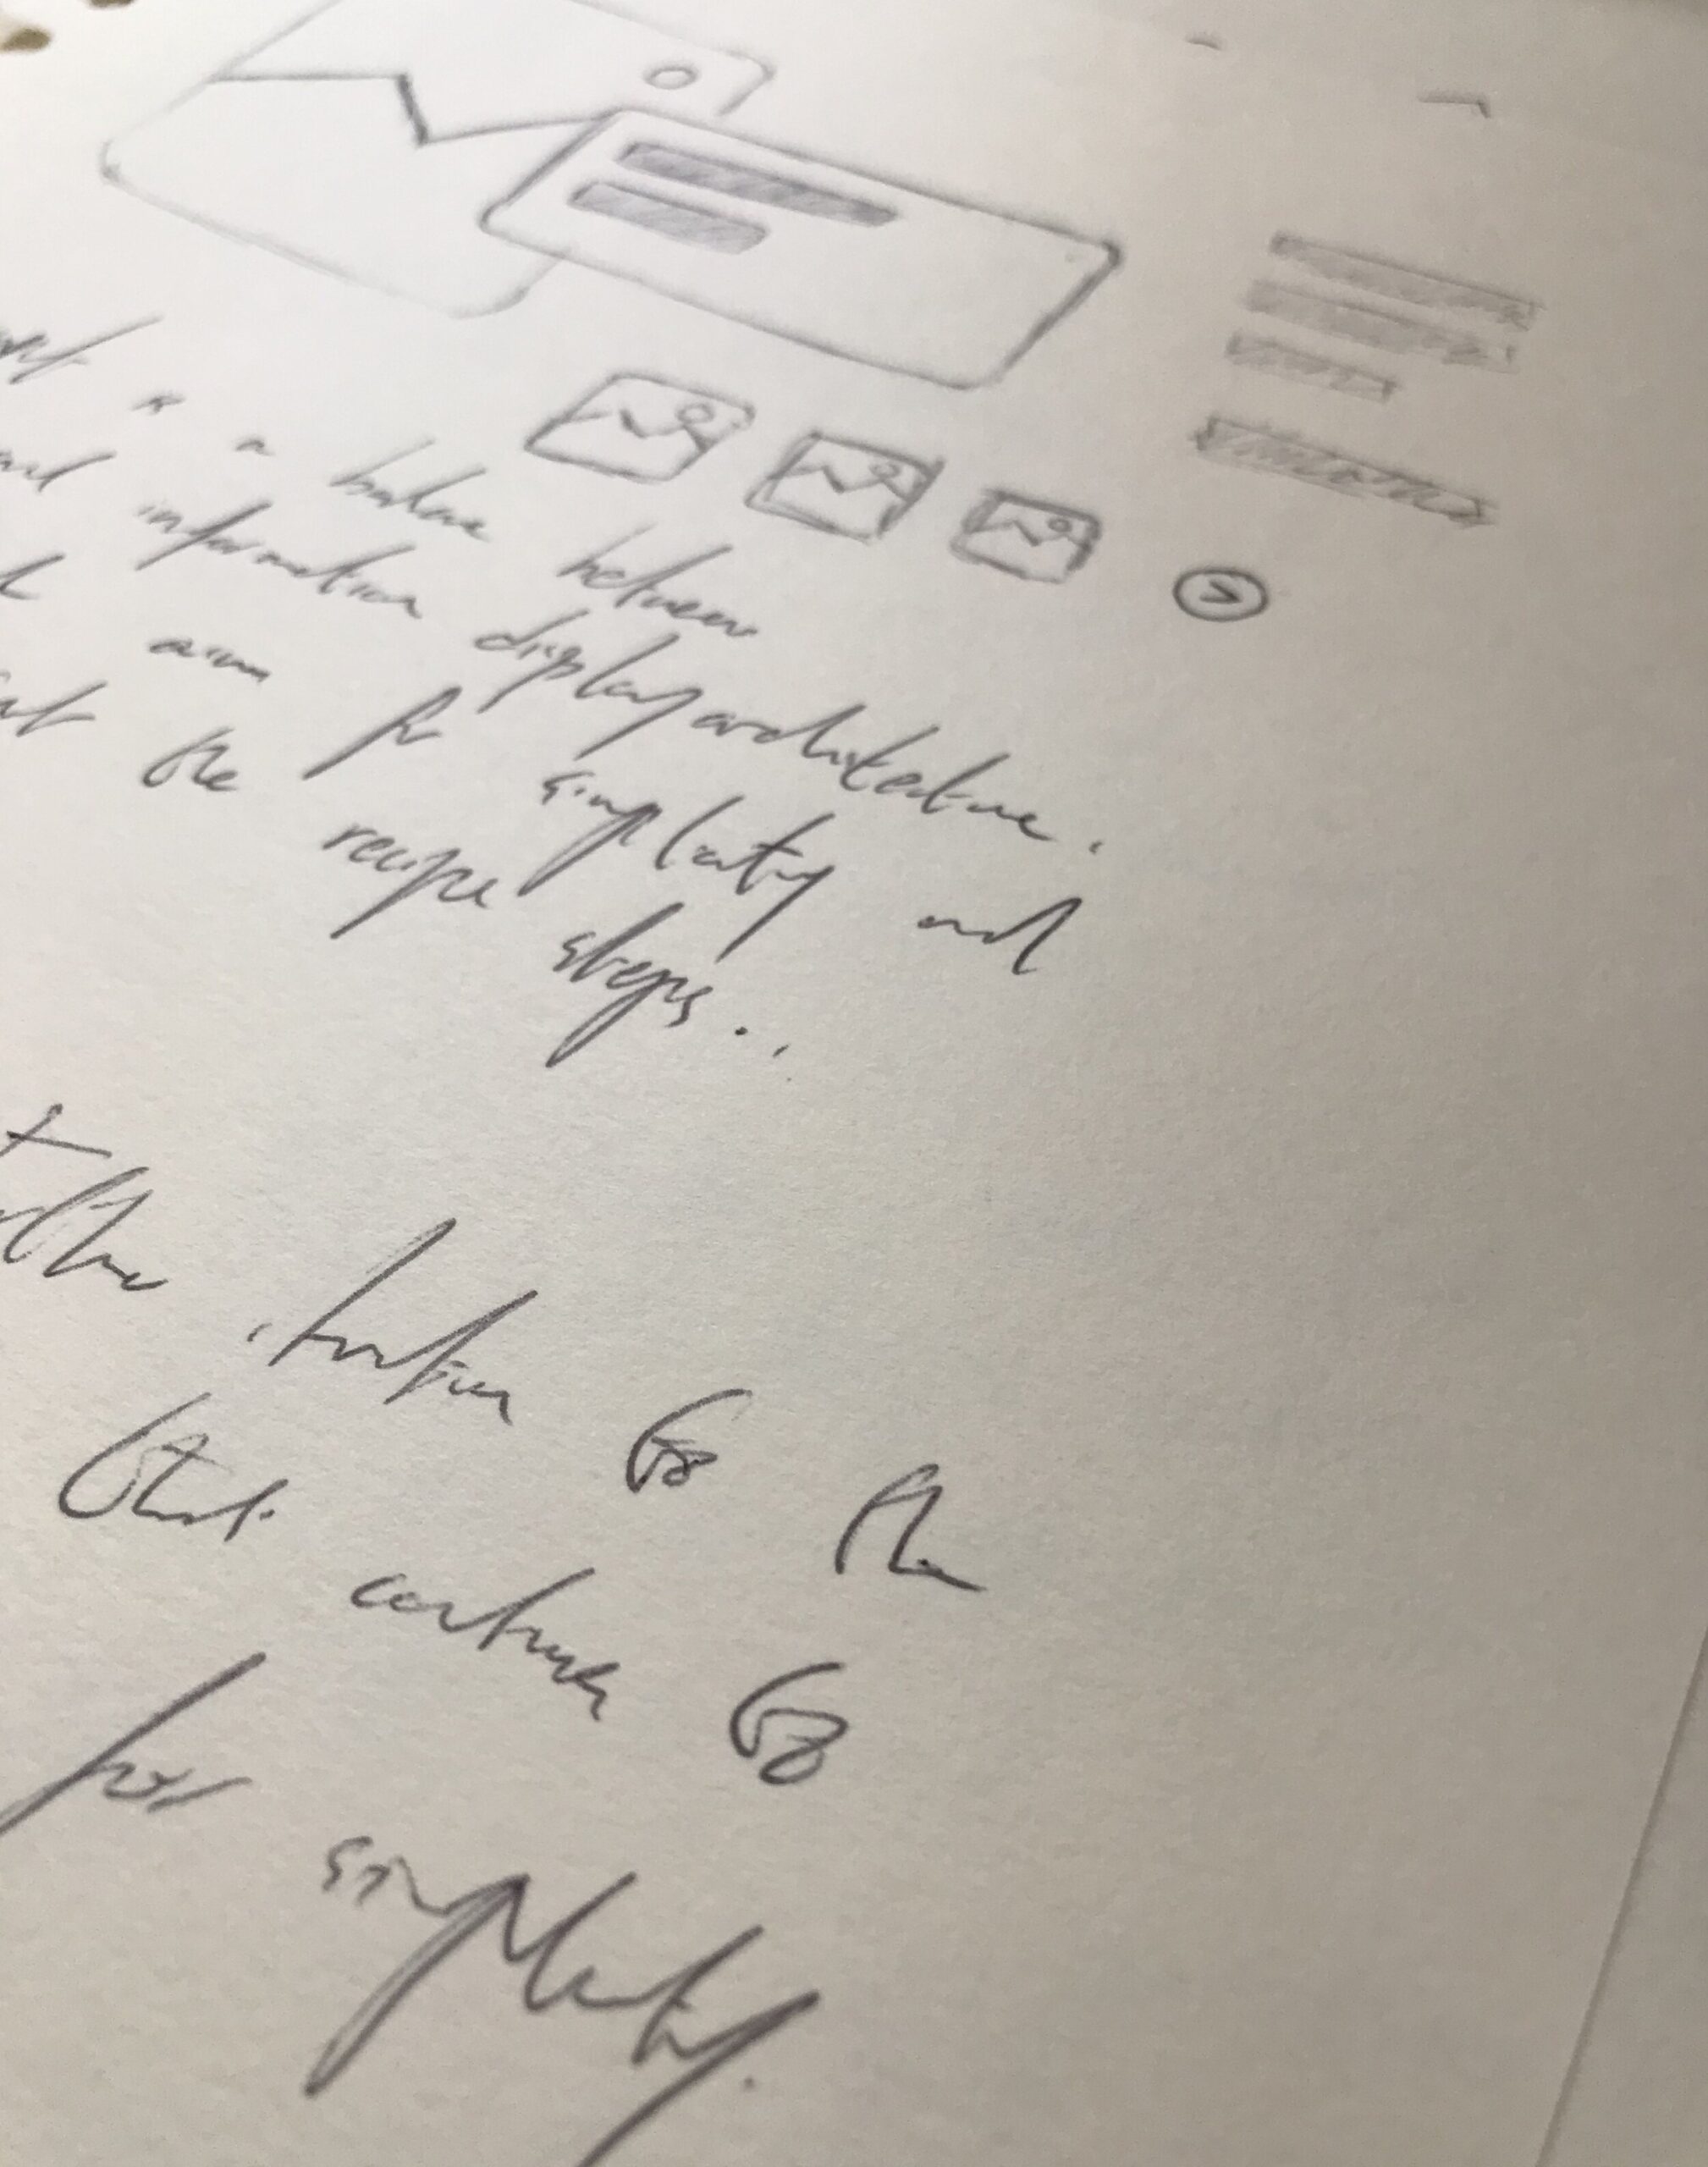 is a balance between
information display architecture.
aim for simplicity and
the recipe steps..
iteration to the
that continues to
for simplicity.